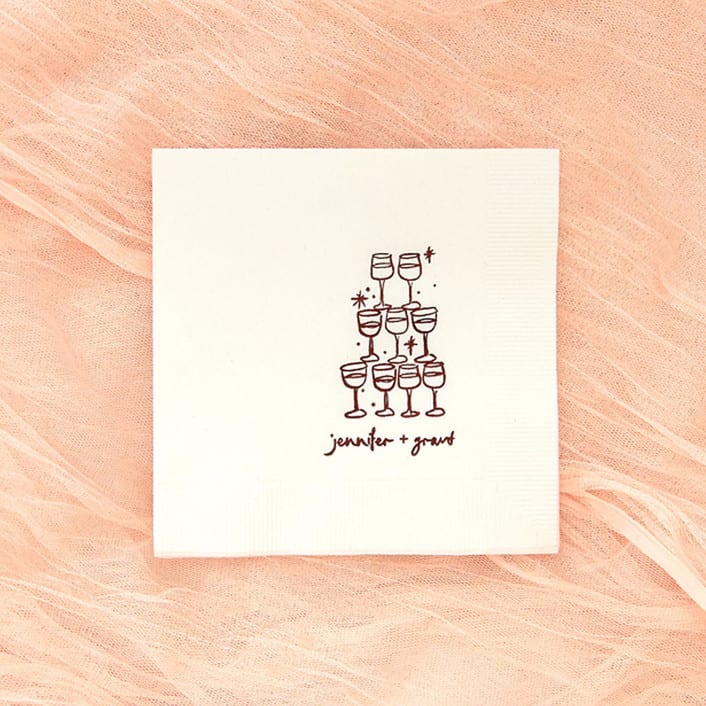 jennifer + grant